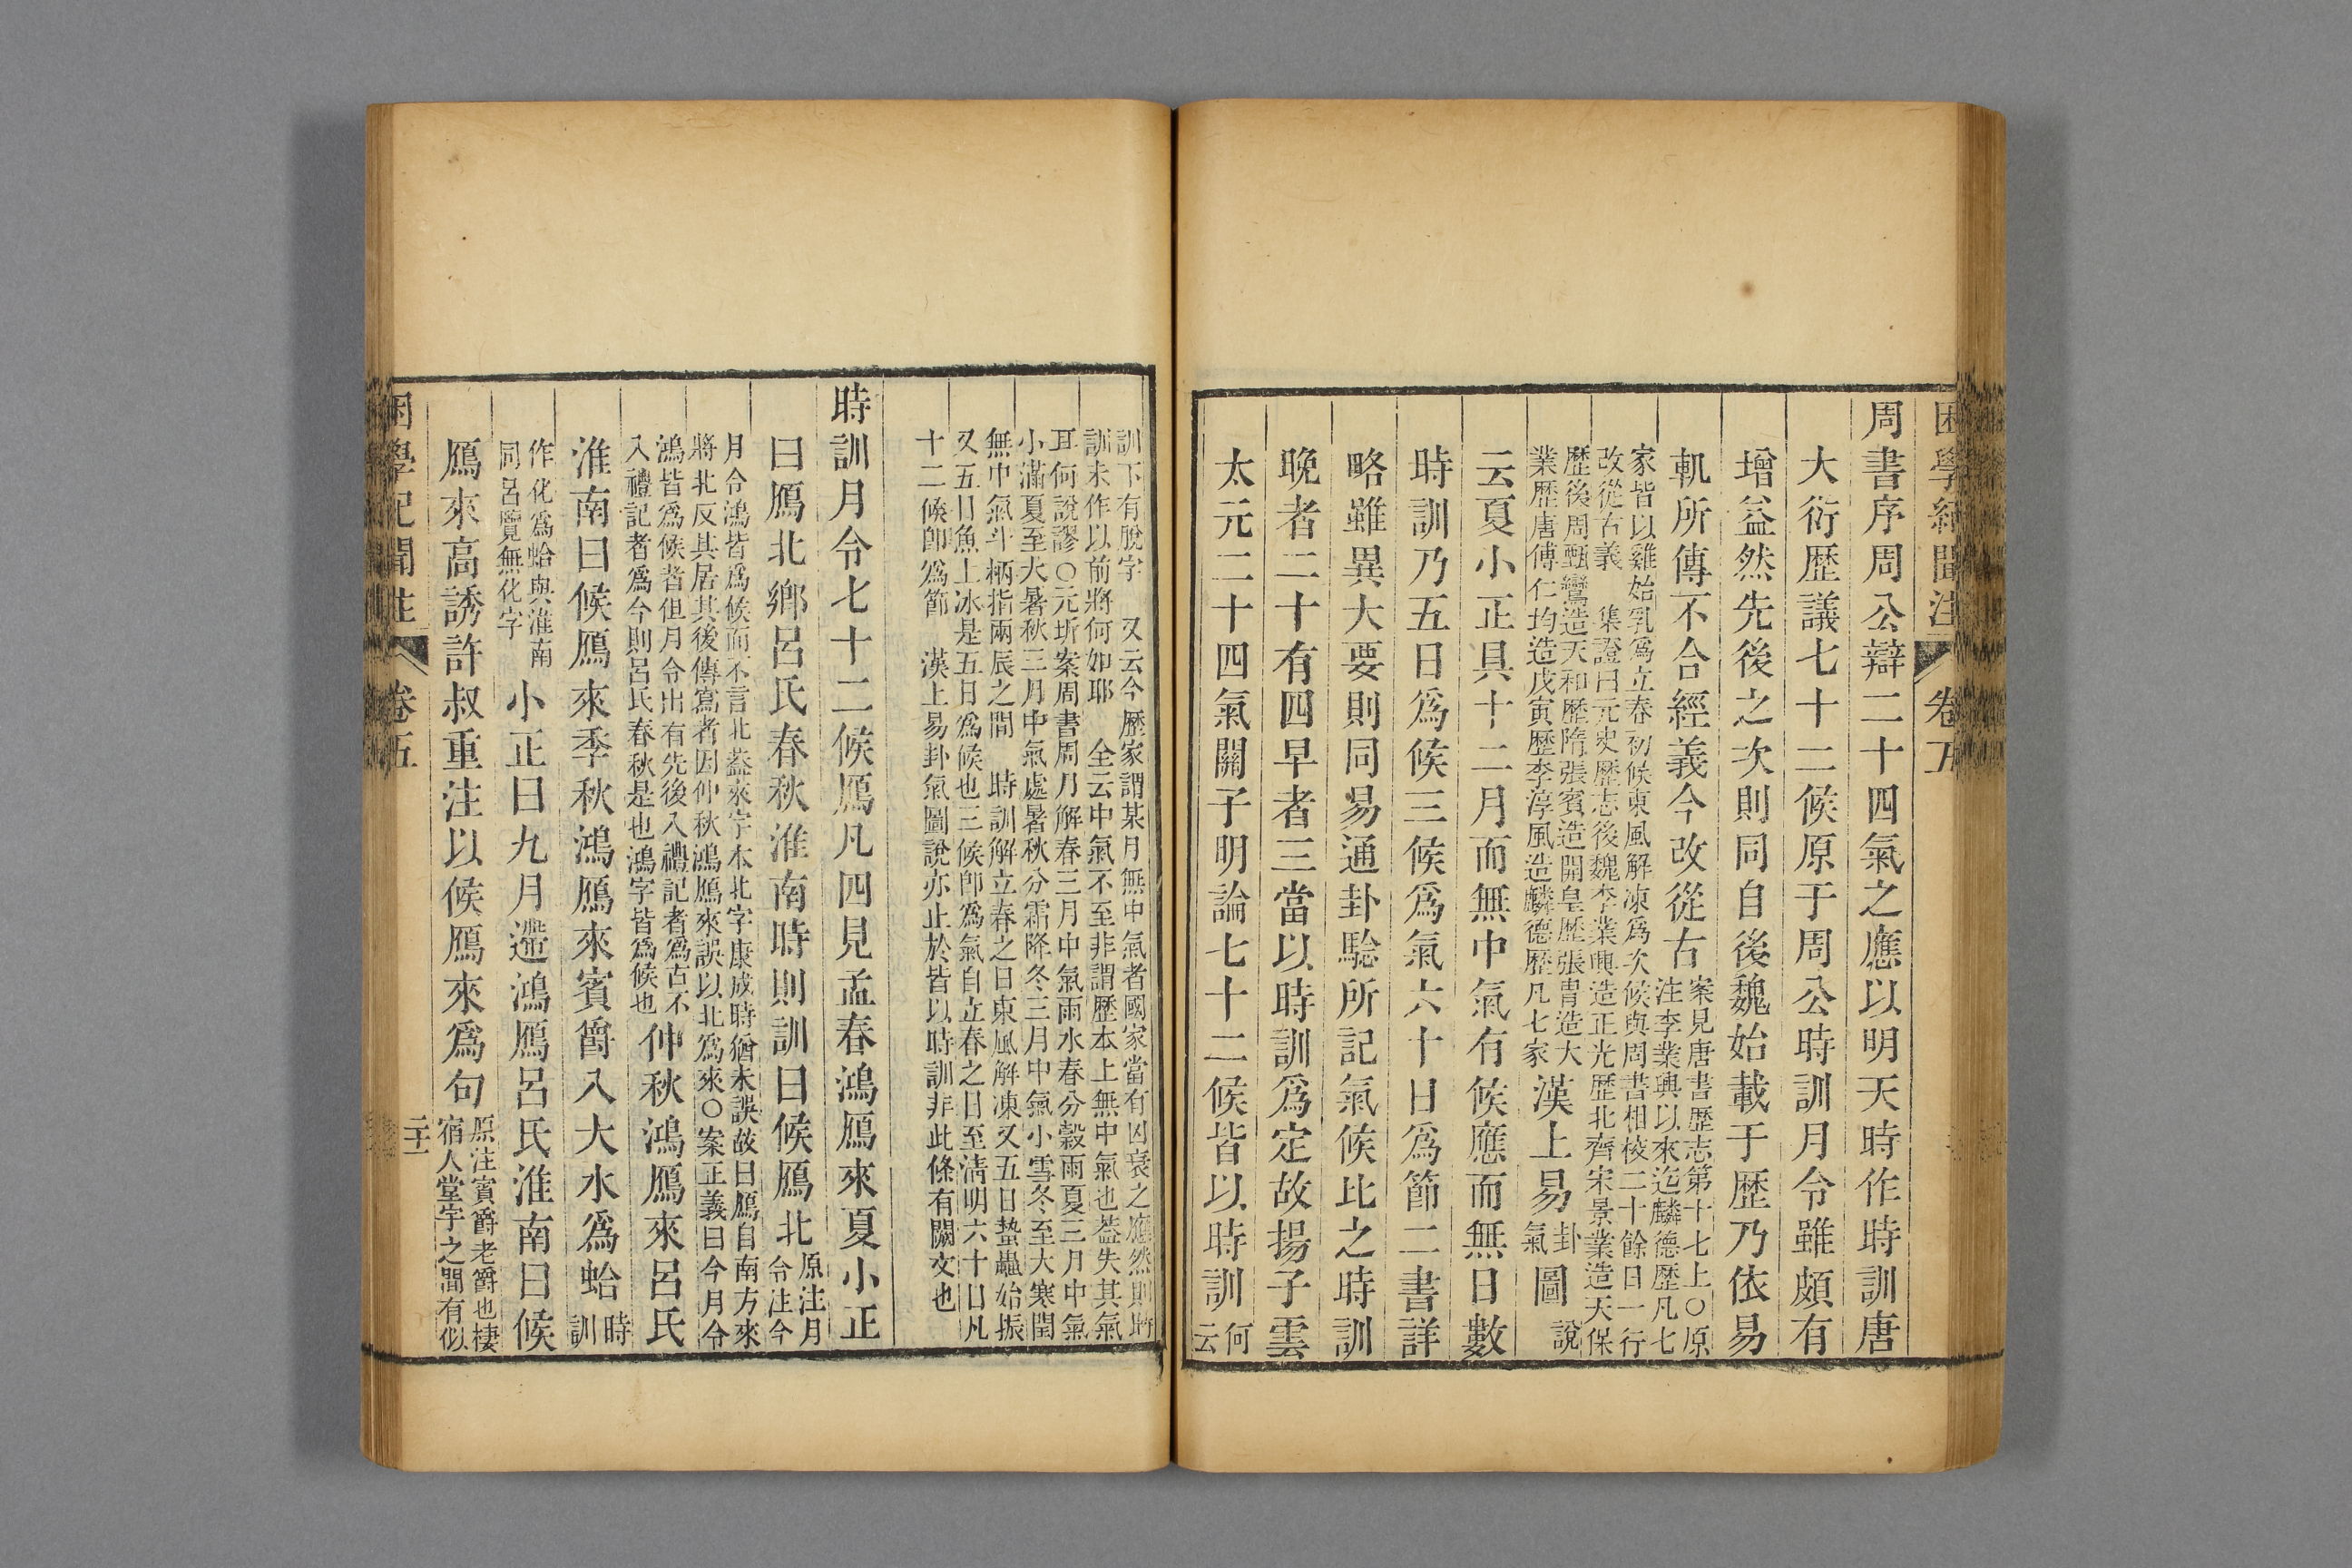 困學紀聞注 卷五
周書序周公辯二十四氣之應以明天時作時訓唐
大衍歷議七十二候原于周公時訓月令雖頗有
增益然先後之次則同自後魏始載于歷乃依易
軌所傳不合經義今改從古案見唐書歷志第十七上○原
注李業興以來迄麟德歷凡七
家皆以雞始乳爲立春初候東風解凍爲次候與周書相校二十餘日一行
改從古義 集證曰元史歷志後魏李業興造正光歷北齊宋景業造天保
歷後周甄鸞造天和歷隋張賓造開皇歷張胄造大
業歷唐傅仁均造戊寅歷李淳風造麟德歷凡七家漢上易卦
氣圖說
云夏小正具十二月而無中氣有候應而無日數
時訓乃五日爲候三候爲氣六十日爲節二書詳
略雖異大要則同易通卦驗所記氣候比之時訓
晚者二十有四早者三當以時訓爲定故揚子雲
太元二十四氣關子明論七十二候皆以時訓何
云
訓下有脫字 又云今歷家謂某月無中氣者國家當有凶衰之應然則時
訓未作以前將何如耶 全云中氣不至非謂歷本上無中氣也葢失其氣
耳何說謬○元圻案周書周月解春三月中氣雨水春分穀雨夏三月中氣
小滿夏至大暑秋三月中氣處暑秋分霜降冬三月中氣小雪冬至大寒閏
無中氣斗柄指兩辰之間 時訓解立春之日東風解凍又五日蟄蟲始振
又五日魚上冰是五日爲候也三候卽爲氣自立春之日至清明六十日凡
十二候卽爲節 漢上易卦氣圖說亦止於皆以時訓非此條有闕文也
時訓月令七十二候鴈凡四見孟春鴻鴈來夏小正
曰鴈北鄉呂氏春秋淮南時則訓曰候鴈北原注月
令注今
月令鴻皆爲候而不言北葢來字本北字康成時猶未誤故曰鴈自南方來
將北反其居其後傳寫者因仲秋鴻鴈來誤以北爲來○案正義曰今月令
鴻皆爲候者但月令出有先後入禮記者爲古不
入禮記者爲今則呂氏春秋是也鴻字皆爲候也仲秋鴻鴈來呂氏
淮南曰候鴈來季秋鴻鴈來賓爵入大水爲蛤時
訓
作化爲蛤與淮南
同呂覽無化字小正曰九月遰鴻鴈呂氏淮南曰候
鴈來高誘許叔重注以候鴈來爲句原注賓爵老爵也棲
宿人堂宇之間有似
困學紀聞注 卷五